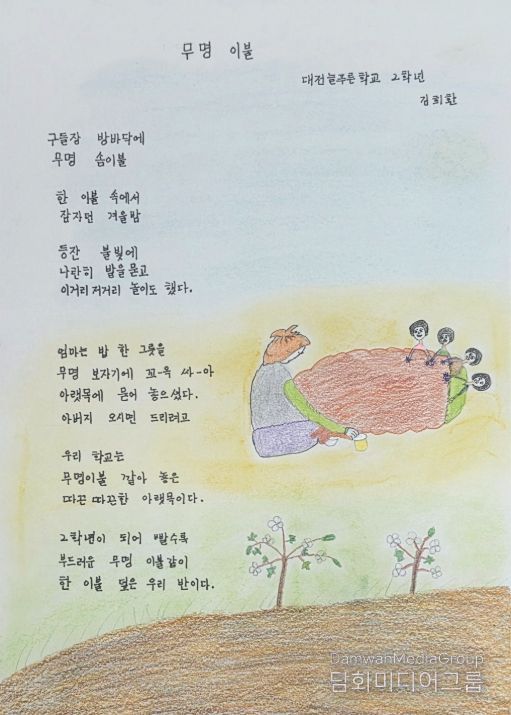 무명 이불
대전늘푸른학교 2학년
김희환
구들장 방바닥에
무명 솜이불
한 이불 속에서
잠자던 겨울밤
등잔 불빛에
나란히 발을묻고
이거리저거리 놀이도 했다.
엄마는 밥 한 그릇을
무명 보자기에 꼬-옥 싸-아
아랫목에 묻어 놓으셨다.
아버지 오시면 드리려고
우리 학교는
무명이불 깔아 놓은
따끈 따끈한 아랫목이다.
2학년이 되어 빨수록
부드러운 무명 이불같이
한 이불 덮은 우리 반이다.
DamwhaMediaGroup
담화미디어그룹